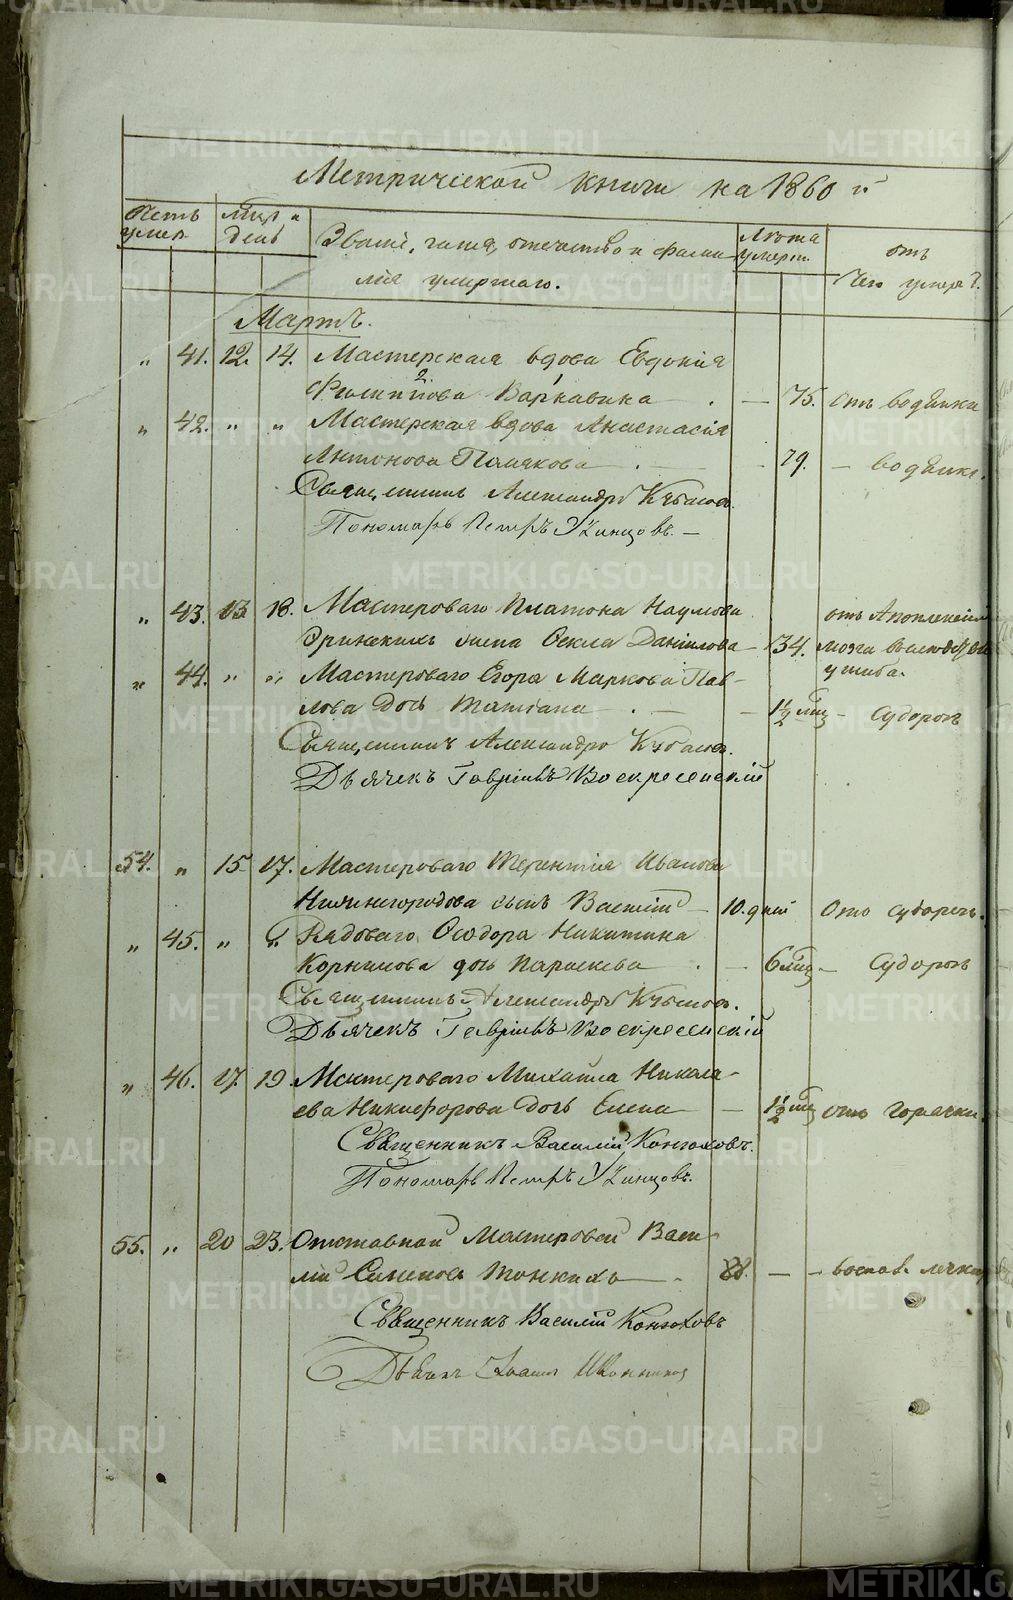 METRIKI.GASO-URAL.RU
Метрической книги на 1860 й
Счетъ умер.
Мцъ и день
Званіе, имя, отечество и фами-
лія умершаго.
Лѣта умерш.
отъ чего умеръ?
Мартъ.
" 41. 12. 14. Мастерская вдова Евдокія
Филипова Варкавина — 75. Отъ водянки
" 42. " " Мастерская вдова Анастасія
Антонова — 79. — водянки.
Священникъ Александръ
Пономарь Петръ Удинцовъ. —
" 43. 13. 18. Мастероваго Платона Наумова
жена Фекла Данилова — 34. отъ Апоплексіи
мозга въ
ушиба.
" 44. " " Мастероваго Егора Маркова Пав-
лова дочь Татіана — 1½ мцъ — Судорогъ
Священникъ Александръ
Дьячекъ Гавріилъ Воскресенскій
54. " 15 17. Мастероваго Терентія Иванова
Нижнегородова сынъ Василій — 10. дней Отъ судорогъ.
" 45. " " Рядоваго Ѳеодора Никитина
Корнилова дочь Параскева — 6 мцъ — Судорогъ
Священникъ Александръ
Дьячекъ Гавріилъ Воскресенскій
" 46. 17. 19. Мастероваго Михаила Никола-
ева Никифорова дочь Елена — 1½ мцъ отъ горячки.
Священникъ Василій Конюховъ.
Пономарь Петръ Удинцовъ.
55. " 20 23. Отставной Мастеровой Васи-
лій Семеновъ Тонкихъ — 88. — — воспал. легких
Священникъ Василій Конюховъ
Дьячекъ Иконников